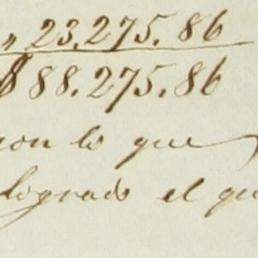 „ 23.275.86
$ 88.275.86
con lo que
logrado el qu